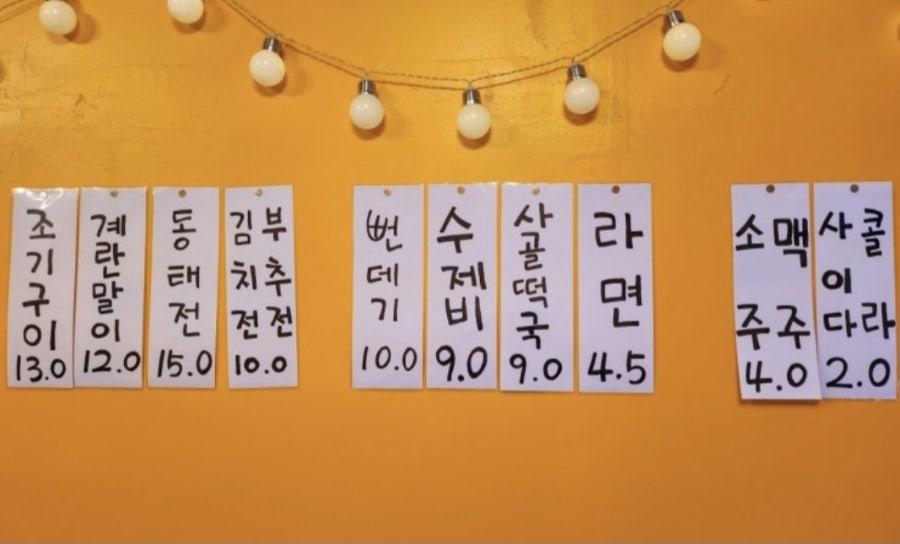 조기구이
13.0
계란말이
12.0
동태전
15.0
김치전
부추전
10.0
뻔데기
10.0
수제비
9.0
사골떡국
9.0
라면
4.5
소주
맥주
4.0
사이다
콜라
2.0